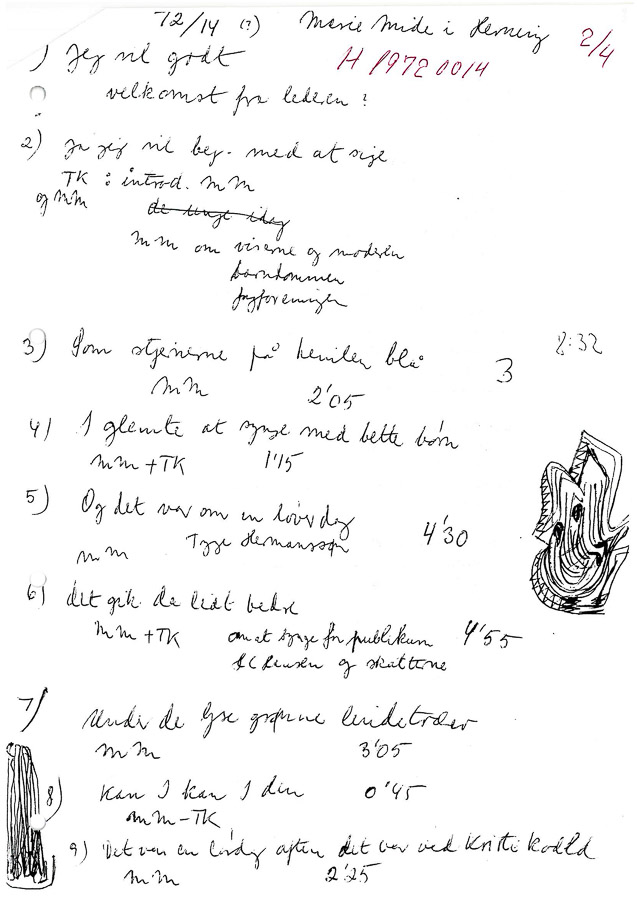 72/14 (?) Marie Mide i Herning 2/4
1) Jeg vil godt H 1972 0014
velkomst fra lederen ?
2) Ja jeg vil beg. med at sige
TK : introd. MM
og MM
de unge idag
MM om viserne og moderen
barndommen
fagforeningen
3) Som stjernerne på himlen blå 3 8:32
MM 2'05
4) I glemte at synge med bette børn
MM + TK 1'15
5) Og det var om en lørdag 4'30
MM Tyge Hermansson
6) det gik da lidt bedre
MM + TK om at synge for publikum 4'55
og skatterne
7) Under de lyse grønne lindetræer
MM 3'05
8) Kan I kan I din 0'45
MM - TK
9) Det var en lørdag aften det var ved
MM 2'25